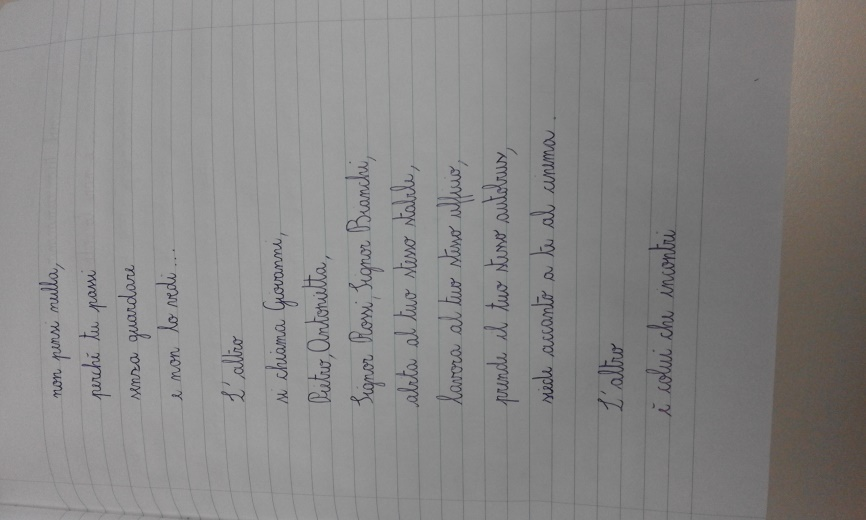 non pensi nulla,
perché tu passi
senza guardare
e non lo vedi...
L'altro
si chiama Giovanni,
Pietro, Antonietta,
Signor Rossi, Signor Bianchi,
abita al tuo stesso stabile,
lavora al tuo stesso ufficio,
prende il tuo stesso autobus,
siede accanto a te al cinema.
L'altro
è colui che incontri